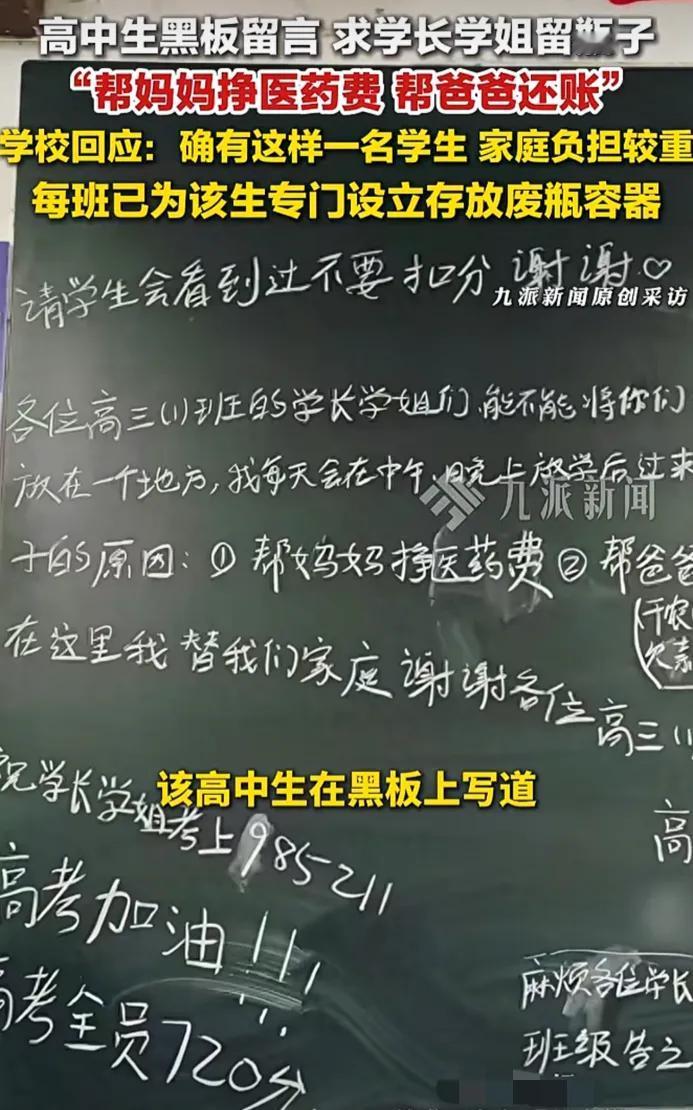 高中生黑板留言 求学长学姐留瓶子
“帮妈妈挣医药费 帮爸爸还账”
学校回应：确有这样一名学生 家庭负担较重
每班已为该生专门设立存放废瓶容器
请学生会看到过不要扣分 谢谢♡
九派新闻原创采访
各位高三(1)班的学长学姐们,能不能将你们
放在一个地方,我每天会在中午、晚上放学后过来
九派新闻
子的原因:① 帮妈妈挣医药费 ② 帮爸爸
(干农
欠款
在这里我替我们家庭谢谢各位高三(1)
该高中生在黑板上写道
学长学姐考上985 211
高
高考加油!!!
高考全员720分
麻烦各位学长
班级告之